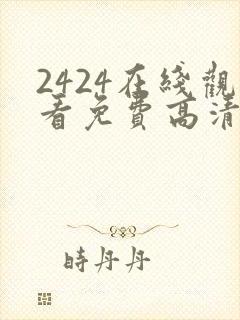 2424在綫觀
看免費高清
時丹丹